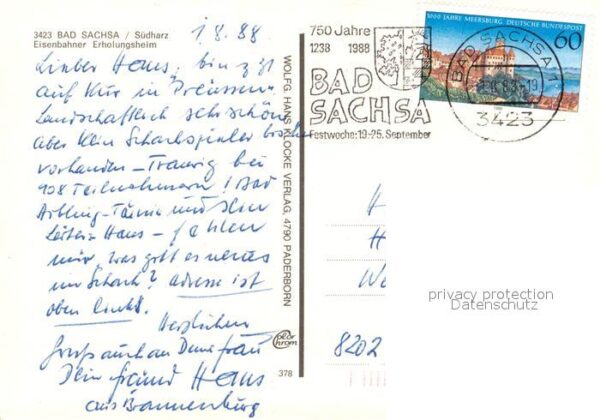 3423 BAD SACHSA / Südharz
Eisenbahner Erholungsheim
1 8. 88
Lieber Hans, bin z. Zt
auf Kur in Preussen
Landschaftlich sehr schön
aber kein Schachspieler bisher
vorhanden - Traurig bei
108 Teilnehmern! Bad
Aibling - und
Leiter - Hans - fehlen
mir, was gibt es neues
im Schach? Adresse ist
oben links.
Herzlichen
Gruß auch an Deine Frau
Dein Freund Hans
aus Brannenburg
WOLFG. HANS KLOCKE VERLAG, 4790 PADERBORN
color chrom
378
750 Jahre
1238 1988
BAD
SACHSA
Festwoche: 19-25. September
1000 JAHRE MEERSBURG DEUTSCHE BUNDESPOST
60
BAD SACHSA 1
3423
H
H
We
8202
privacy protection
Datenschutz